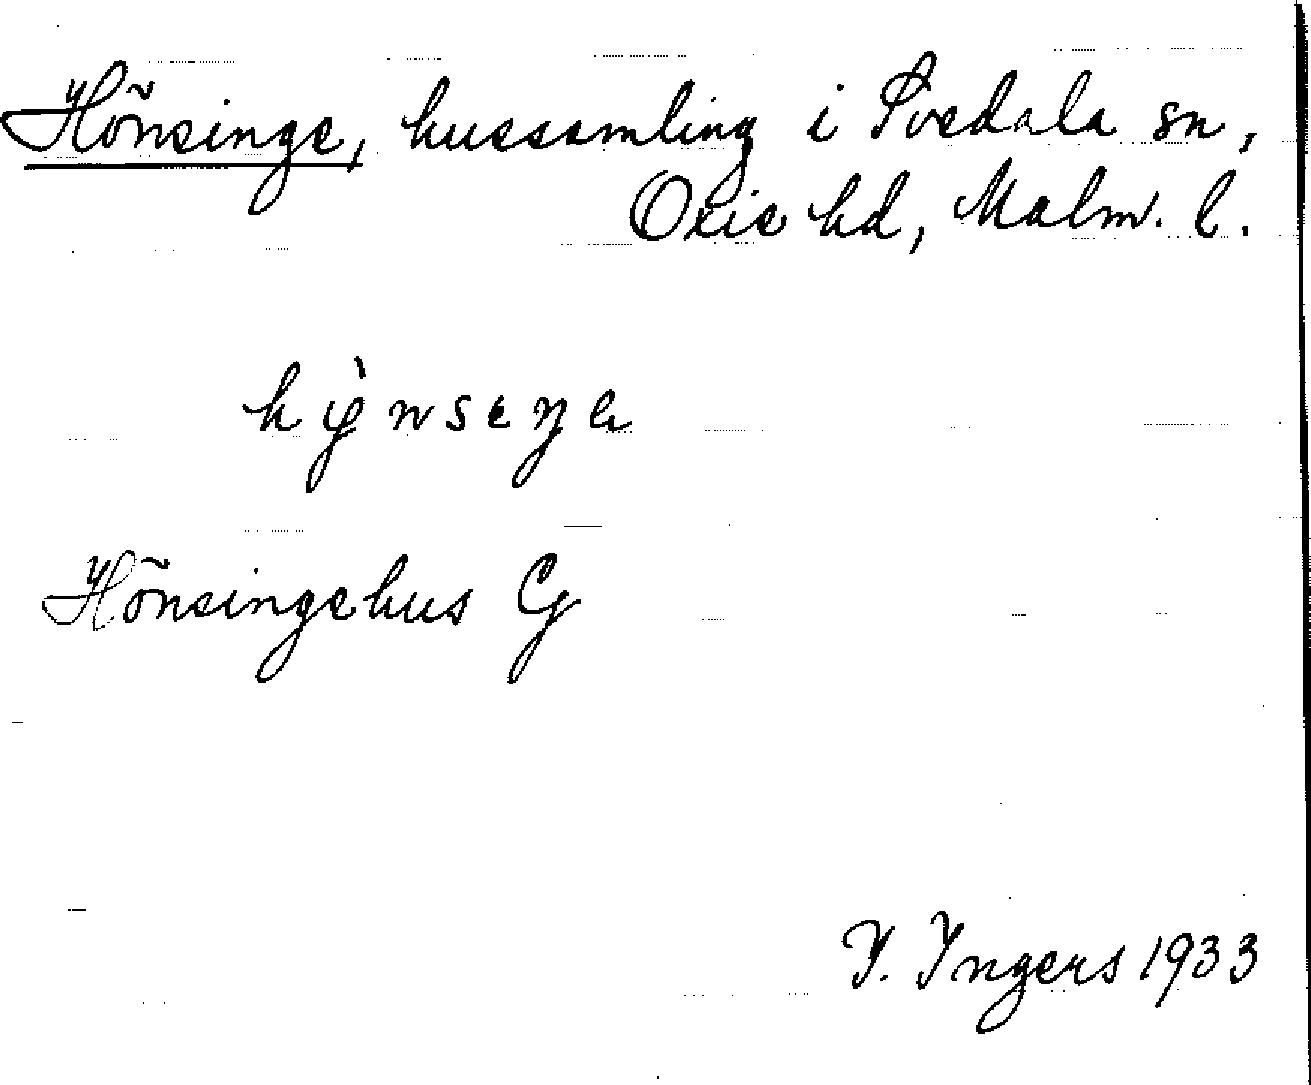 Hönsinge, hussamling i Svedala sn,
Oxie hd, Malm. l.
hỳnseŋa
Hönsingehus G
I. Ingers 1933